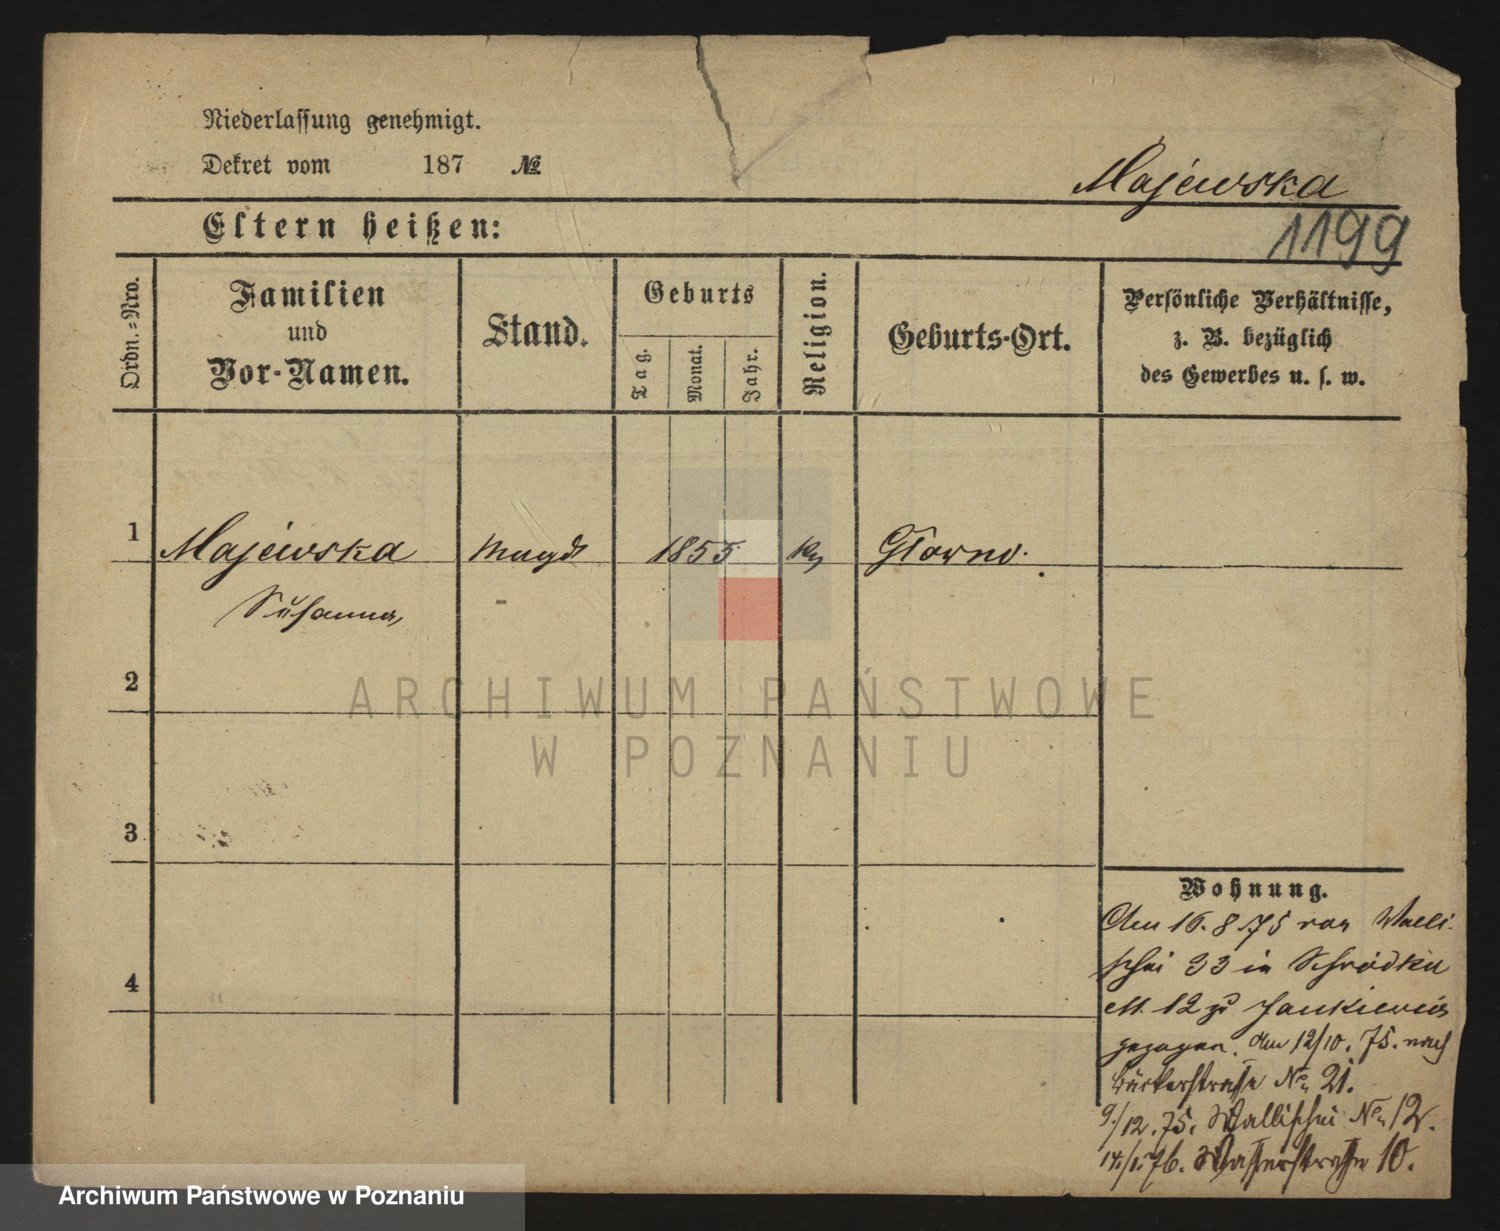 Niederlassung genehmigt.
Dekret vom 187 №
Majewska
1199
Eltern heißen:
Ordn.-Nro.
Familien
und
Vor-Namen.
Stand.
Geburts
Tag.
Monat.
Jahr.
Religion.
Geburts-Ort.
Persönliche Verhältnisse,
z. B. bezüglich
des Gewerbes u. s. w.
1 Majewska Magd 1855 Głowno.
Susanna
2
3
4
ARCHIWUM PAŃSTWOWE
W POZNANIU
Wohnung.
Am 16.8.75 von Walli-
schei 33 in Schrodka
12 zu Jankiewicz
gezogen. Am 12/10. 75. nach
Bäckerstraße No 21.
9/12. 75. Wallischei No 12.
14/1. 76. Wasserstraße 10.
Archiwum Państwowe w Poznaniu